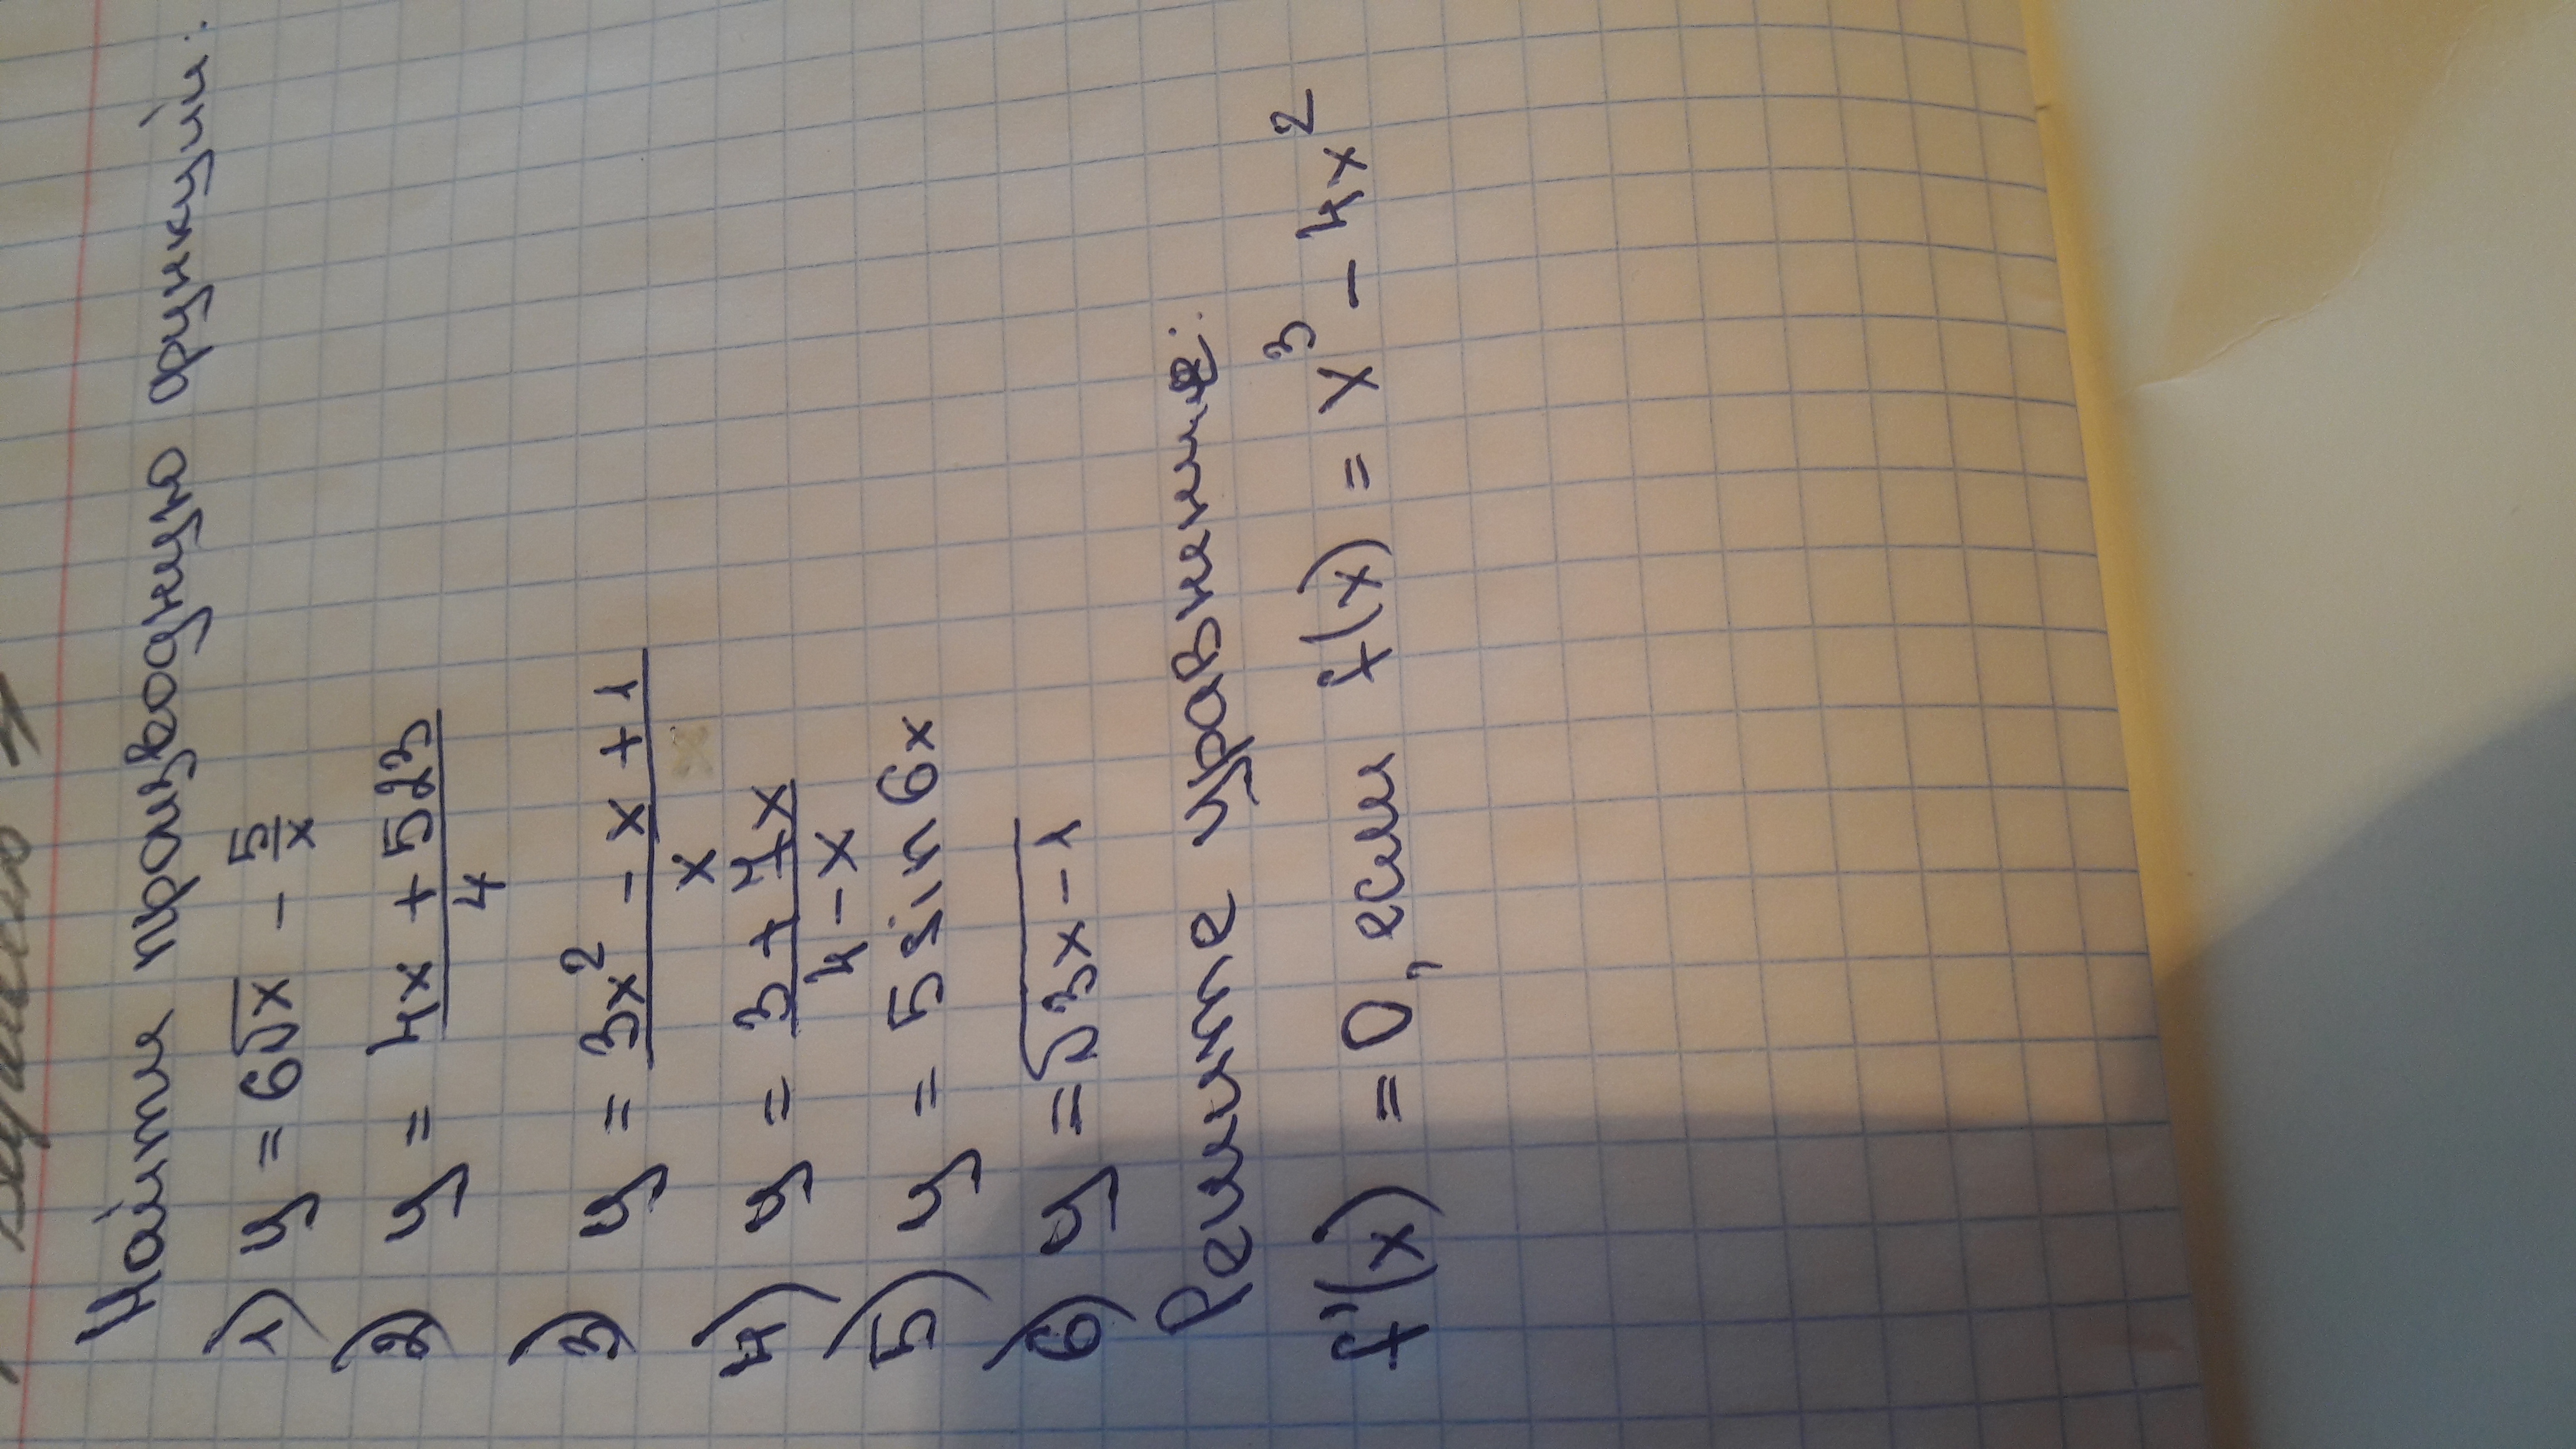 Найти производную функции:
1) y = 6√x - 5/x
2) y = (4x + 523)/4
3) y = (3x² - x + 1)/x
4) y = (3 + 7x)/(4 - x)
5) y = 5 sin 6x
6) y = √(3x - 1)
Решите уравнение:
f'(x) = 0, если f(x) = x³ - 4x²